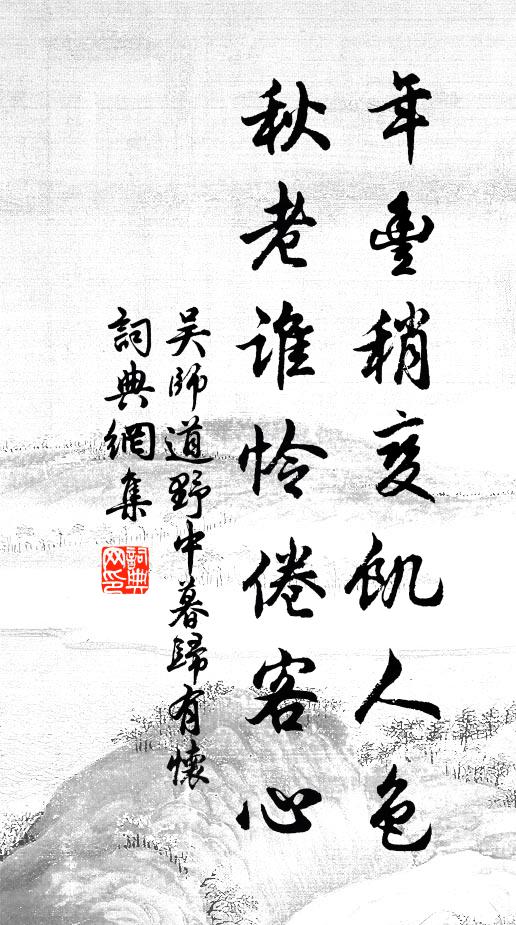 年豊稍變飢人色
秋老誰怜倦客心
吳師道野中暮歸有懷
詞典網集
詞典
网印